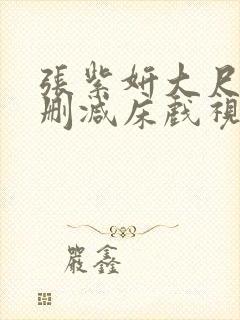 張紫妍大尺
刪減床戲視
嚴鑫